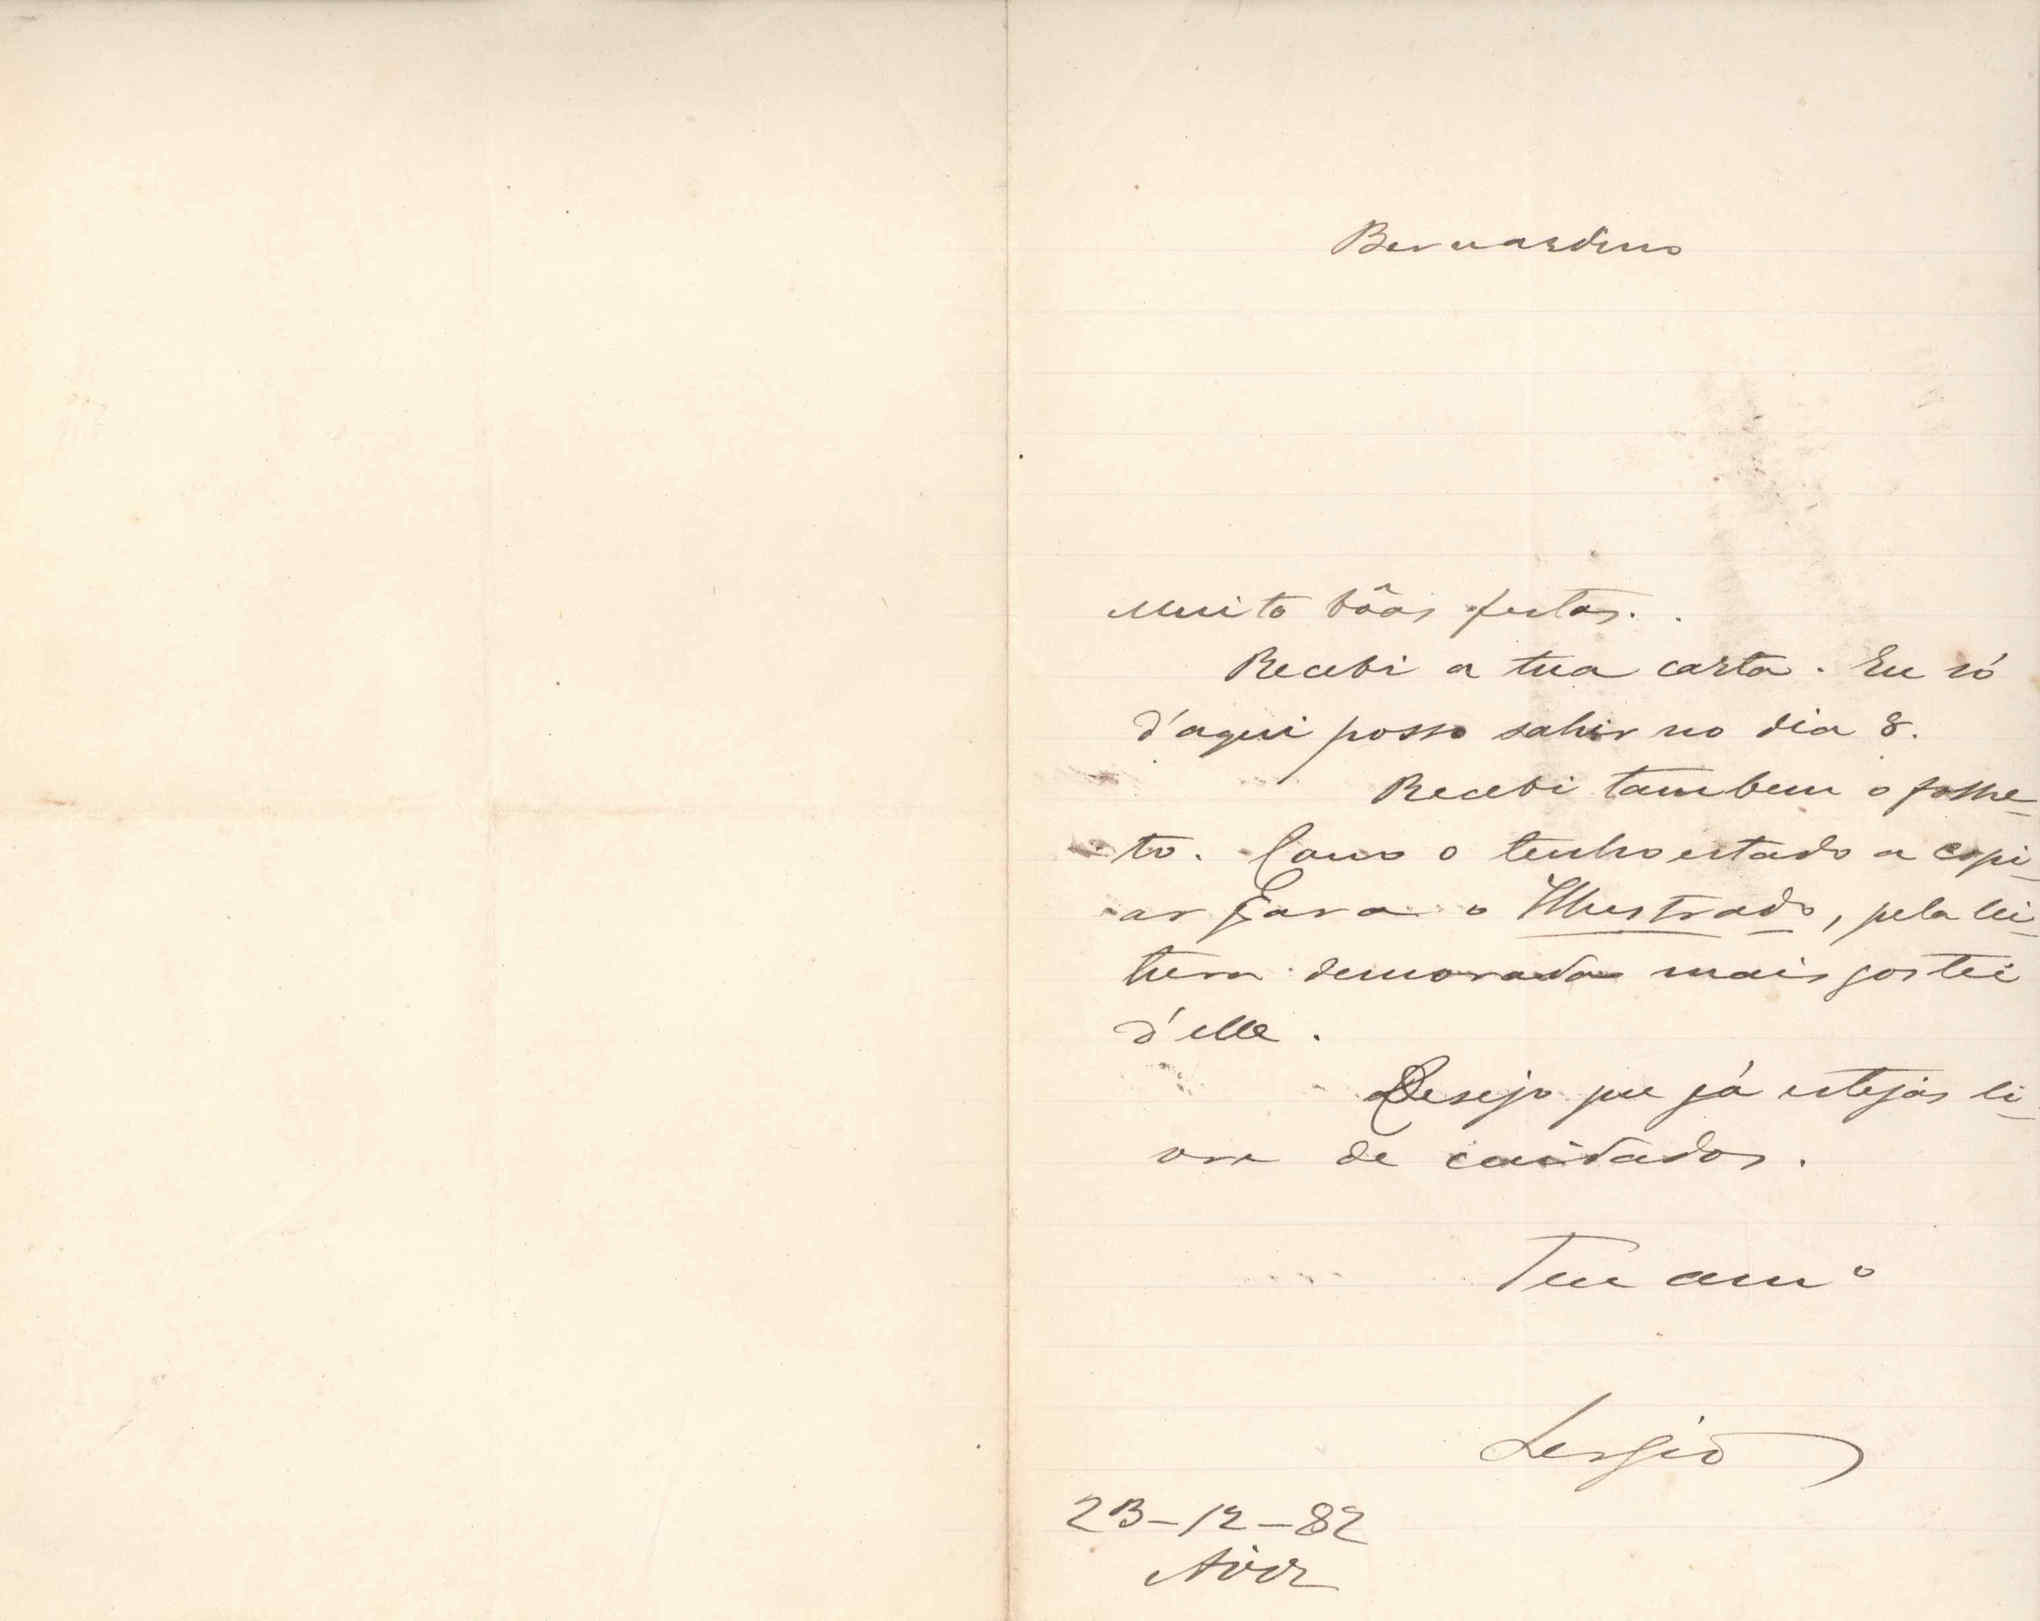 Bernardino
Muito bôas festas.
Recebi a tua carta. Eu só
d'aqui posso sahir no dia 8.
Recebi tambem o folhe-
to. Como o tenho estado a copi-
ar para o Illustrado, pela lei-
tura demorada mais gostei
d'elle.
Desejo que já estejas li-
vre de cuidados.
Teu am.º
Sergio
23-12-82